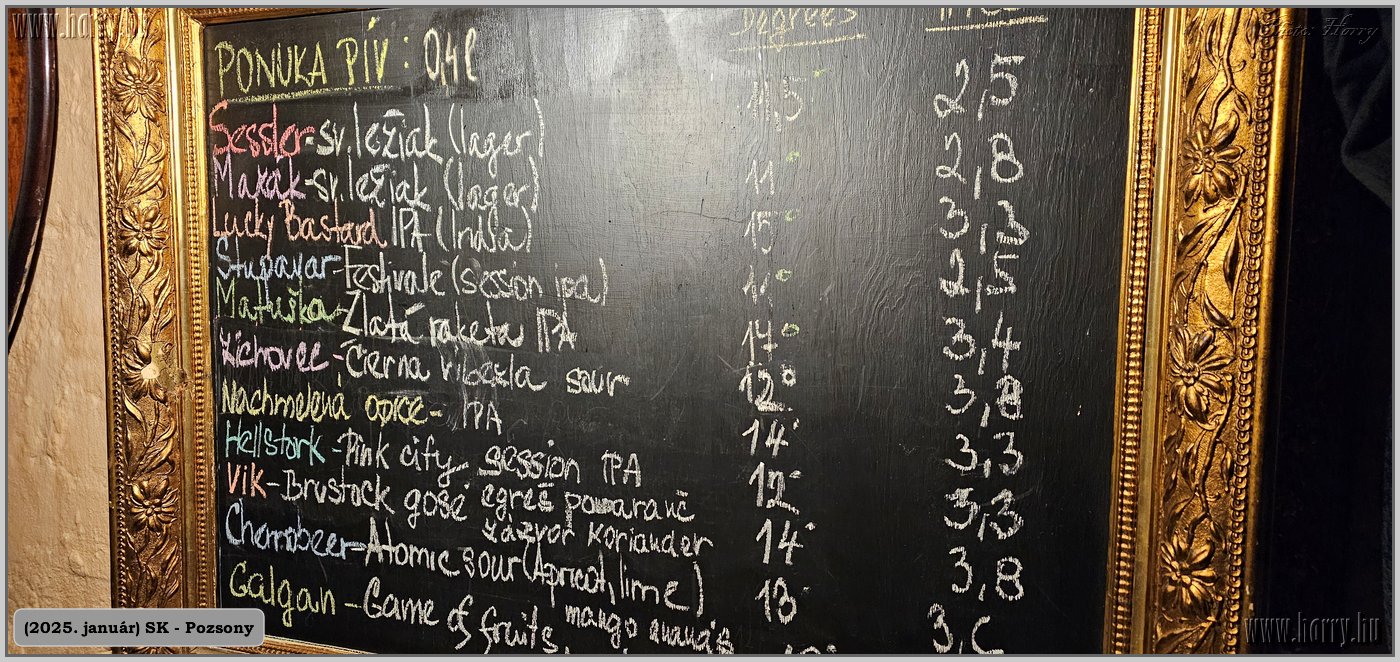 www.harry.hu
Photo: Harry
Degrees
PONUKA PÍV : 0,4l
Sessler-sv. ležiak (lager) 11,5° 2,5
Makák-sv. ležiak (lager) 11° 2,8
Lucky Bastard IPA (India) 15° 3,3
Stupavar-Festivale (session ipa) 11° 2,5
Matuška-Zlatá raketa IPA 17° 3,4
Zichovec-Čierna ríbezla sour 12° 3,8
Nachmelená opice- IPA 14° 3,3
Hellstork -Pink city session IPA 12° 3,3
Vik-Brustock gose egreš pomaranč
zázvor koriander 14° 3,8
Chernobeer-Atomic sour (Apricot, lime) 13°
Galgan -Game of fruits, mango ananás
(2025. január) SK - Pozsony
www.harry.hu